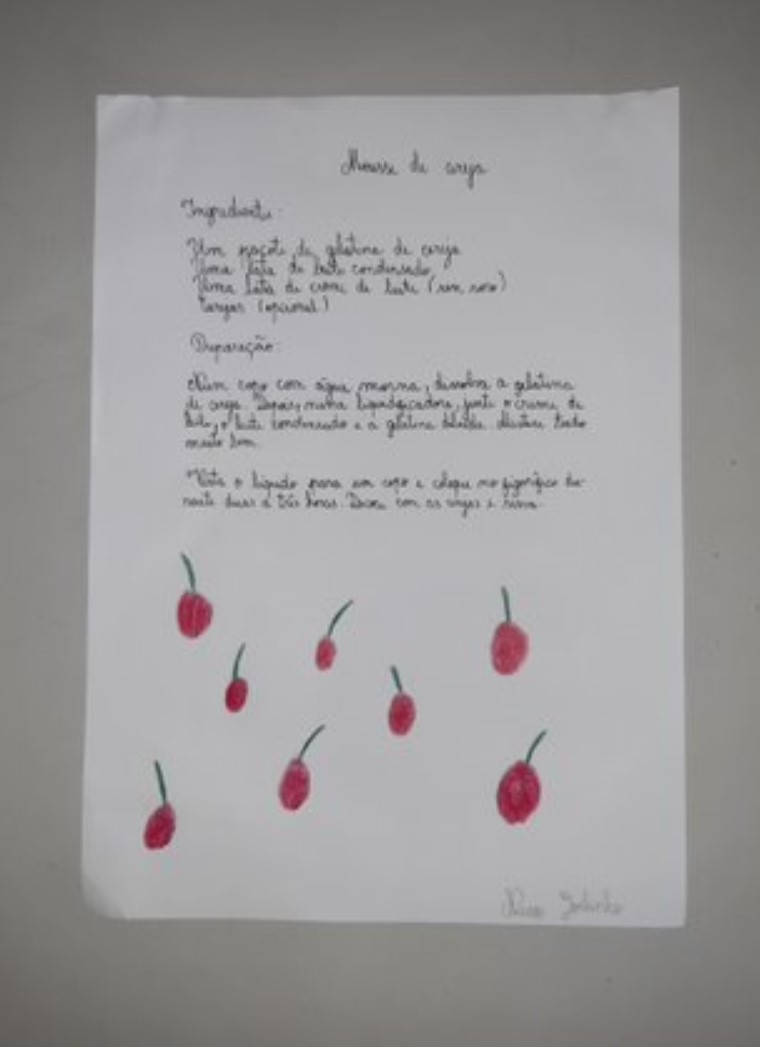 Mousse de cereja
Ingredientes:
Um pacote de gelatina de cereja
Uma lata de leite condensado
Uma lata de creme de leite (sem soro)
Cerejas (opcional)
Preparação:
Num copo com água morna, dissolva a gelatina
de cereja. Depois, numa liquidificadora, junte o creme de
leite, o leite condensado e a gelatina diluída. Misture tudo
muito bem.
Verta o líquido para um copo e coloque no frigorífico du-
rante duas a três horas. Decore com as cerejas e sirva.